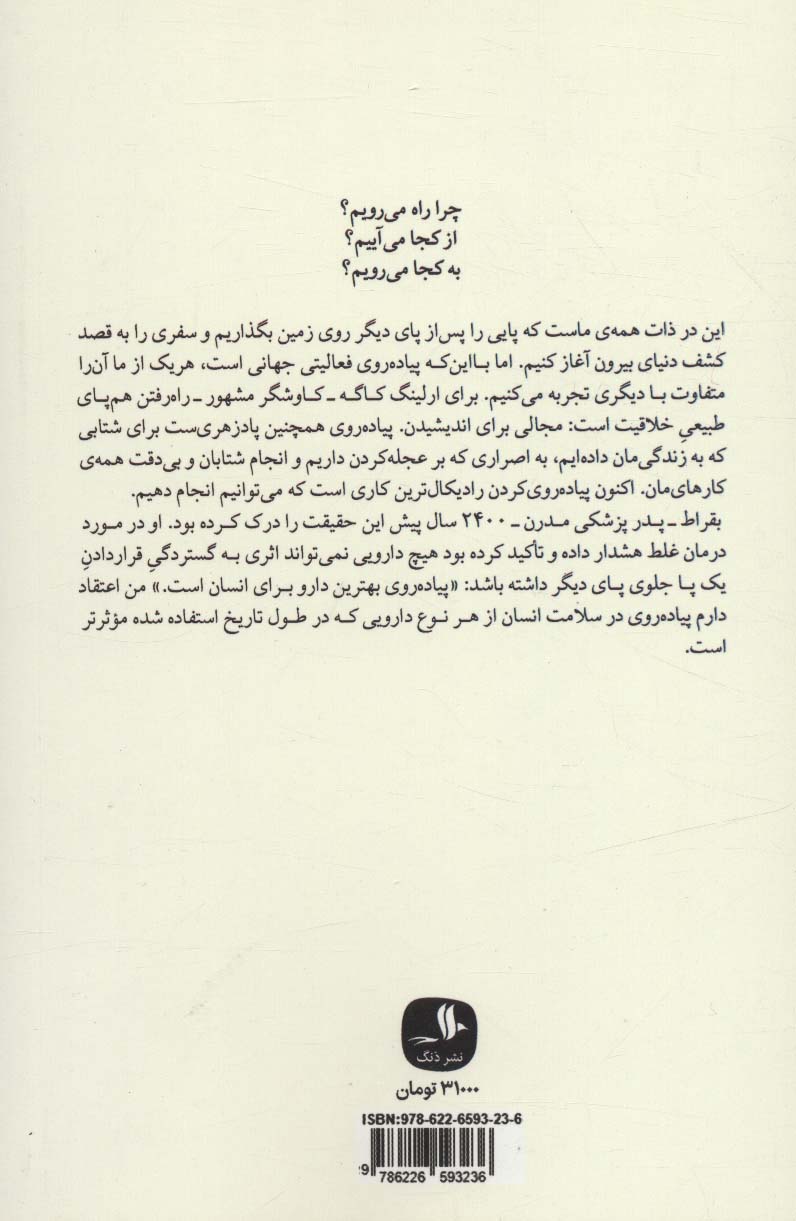 چرا راه می‌رویم؟
از کجا می‌آییم؟
به کجا می‌رویم؟
این در ذات همه‌ی ماست که پایی را پس‌از پای دیگر روی زمین بگذاریم و سفری را به قصد
کشف دنیای بیرون آغاز کنیم. اما بااین‌که پیاده‌روی فعالیتی جهانی است، هریک از ما آن‌را
متفاوت با دیگری تجربه می‌کنیم. برای ارلینگ کاگه ـ کاوشگر مشهور ـ راه‌رفتن هم‌پای
طبیعیِ خلاقیت است: مجالی برای اندیشیدن. پیاده‌روی همچنین پادزهری‌ست برای شتابی
که به زندگی‌مان داده‌ایم، به اصراری که بر عجله‌کردن داریم و انجام شتابان و بی‌دقت همه‌ی
کارهای‌مان. اکنون پیاده‌روی‌کردن رادیکال‌ترین کاری است که می‌توانیم انجام دهیم.
بقراط ـ پدر پزشکی مدرن ـ ۲۴۰۰ سال پیش این حقیقت را درک کرده بود. او در مورد
درمان غلط هشدار داده و تأکید کرده بود هیچ دارویی نمی‌تواند اثری به گستردگیِ قراردادنِ
یک پا جلوی پای دیگر داشته باشد: «پیاده‌روی بهترین دارو برای انسان است.» من اعتقاد
دارم پیاده‌روی در سلامت انسان از هر نوع دارویی که در طول تاریخ استفاده شده مؤثرتر
است.
نشر دَنگ
۳۱۰۰۰ تومان
ISBN:978-622-6593-23-6
9 786226 593236